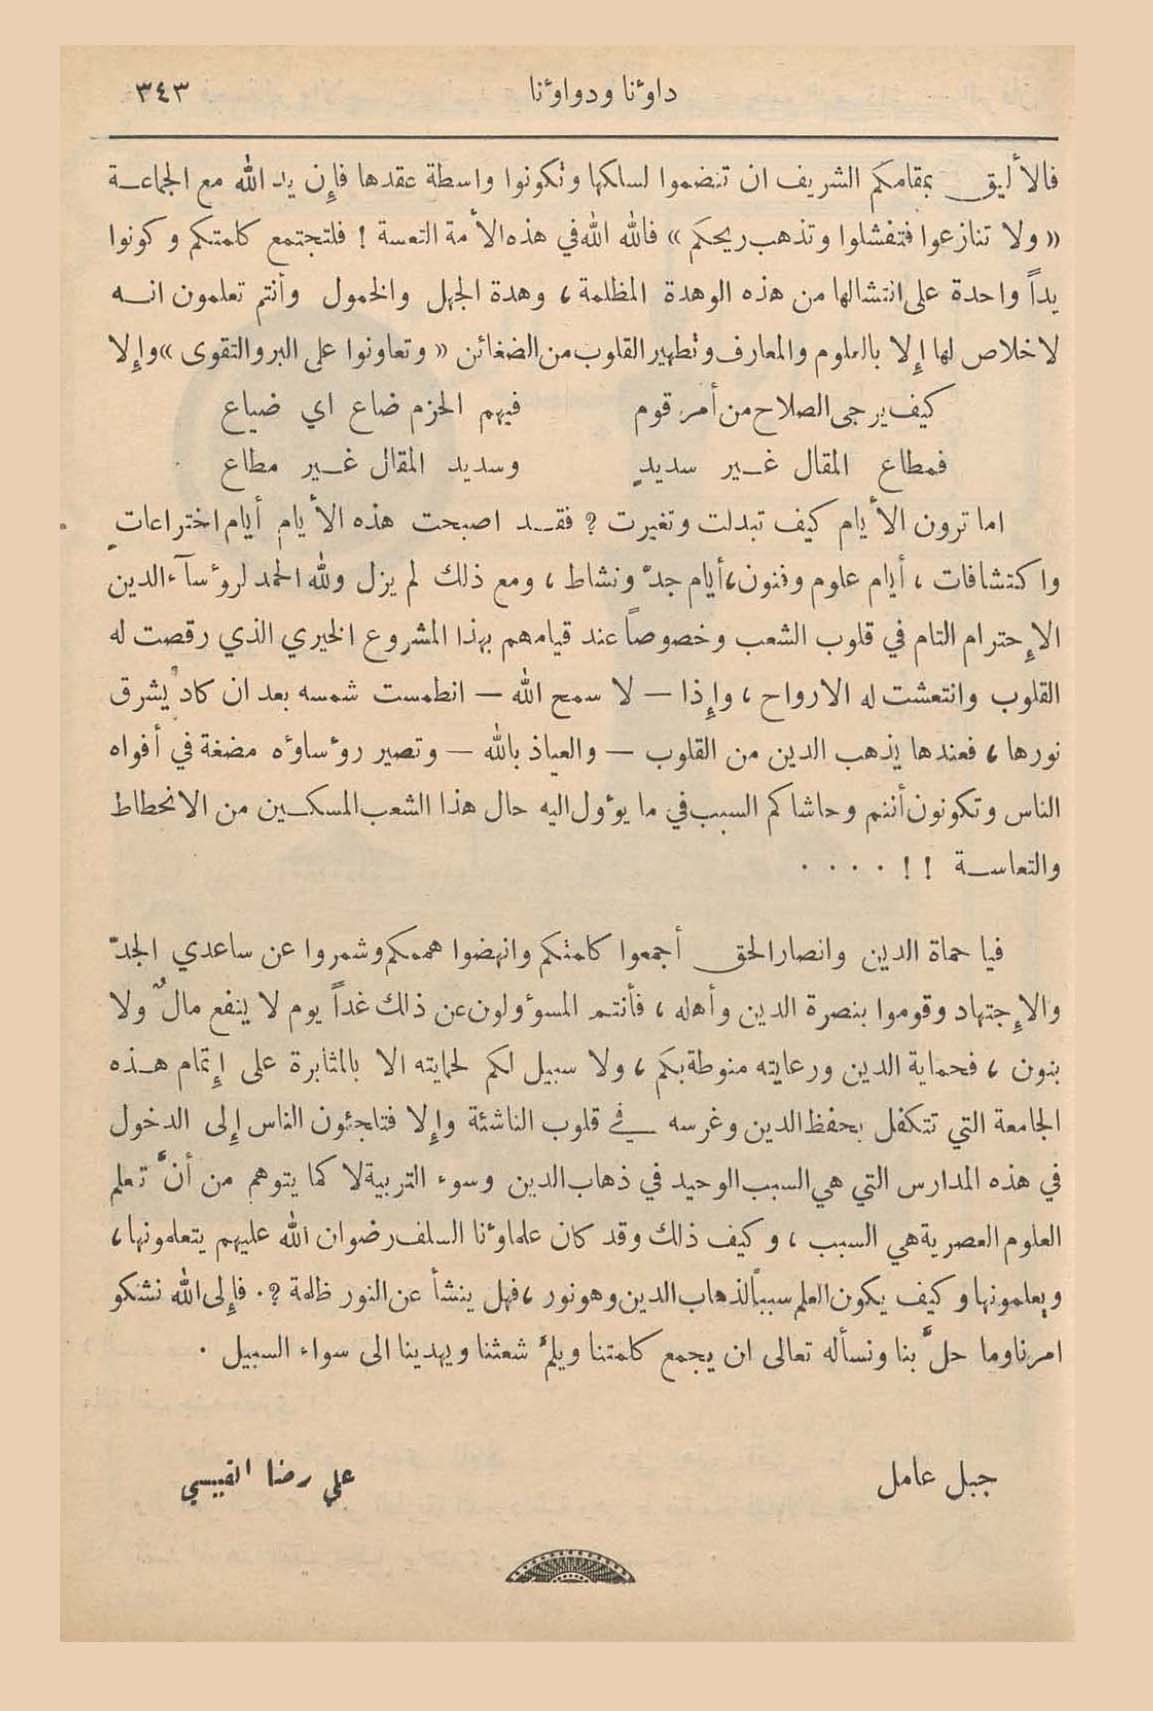 داوءنا ودواوءنا ٣٤٣
فالأليق بمقامكم الشريف ان تنضموا لسلكها وتكونوا واسطة عقدها فإن يد الله مع الجماعة
« ولا تنازعوا فتفشلوا وتذهب ريحكم » فالله الله في هذه الأمة التعسة ! فلتجتمع كلمتكم وكونوا
يداً واحدة على انتشالها من هذه الوهدة المظلمة ، وهدة الجهل والخمول وأنتم تعلمون انه
لا خلاص لها إلا بالعلوم والمعارف وتطهير القلوب من الضغائن « وتعاونوا على البر والتقوى » وإلا
كيف يرجى الصلاح من أمر قوم فيهم الحزم ضاع اي ضياع
فمطاع المقال غير سديدٍ وسديد المقال غير مطاع
اما ترون الأيام كيف تبدلت وتغيرت ؟ فقد اصبحت هذه الأيام أيام اختراعاتٍ
واكتشافات ، أيام علوم وفنون ، أيام جدّ ونشاط ، ومع ذلك لم يزل ولله الحمد لروءسآء الدين
الإحترام التام في قلوب الشعب وخصوصاً عند قيامهم بهذا المشروع الخيري الذي رقصت له
القلوب وانتعشت له الارواح ، وإذا — لا سمح الله — انطمست شمسه بعد ان كاد يُشرق
نورها ، فعندها يذهب الدين من القلوب — والعياذ بالله — وتصير روءساوءه مضغة في أفواه
الناس وتكونون أنتم وحاشاكم السبب في ما يوءول اليه حال هذا الشعب المسكين من الانحطاط
والتعاسة ! ! . . . .
فيا حماة الدين وانصار الحق أجمعوا كلمتكم وانهضوا هممكم وشمروا عن ساعدي الجدّ
والإجتهاد وقوموا بنصرة الدين وأهله ، فأنتم المسوءولون عن ذلك غداً يوم لا ينفع مالٌ ولا
بنون ، فحماية الدين ورعايته منوطة بكم ، ولا سبيل لكم لحمايته الا بالمثابرة على إتمام هذه
الجامعة التي تتكفل بحفظ الدين وغرسه في قلوب الناشئة وإلا فتلجئون الناس إلى الدخول
في هذه المدارس التي هي السبب الوحيد في ذهاب الدين وسوء التربية لا كما يتوهم من أنَّ تعلم
العلوم العصرية هي السبب ، وكيف ذلك وقد كان علماوءنا السلف رضوان الله عليهم يتعلمونها ،
ويعلمونها وكيف يكون العلم سبباً لذهاب الدين وهو نور ، فهل ينشأ عن النور ظلمة ؟ . فإلى الله نشكو
امرنا وما حلَّ بنا ونسأله تعالى ان يجمع كلمتنا ويلمَّ شعثنا ويهدينا الى سواء السبيل .
جبل عامل علي رضا القبيسي